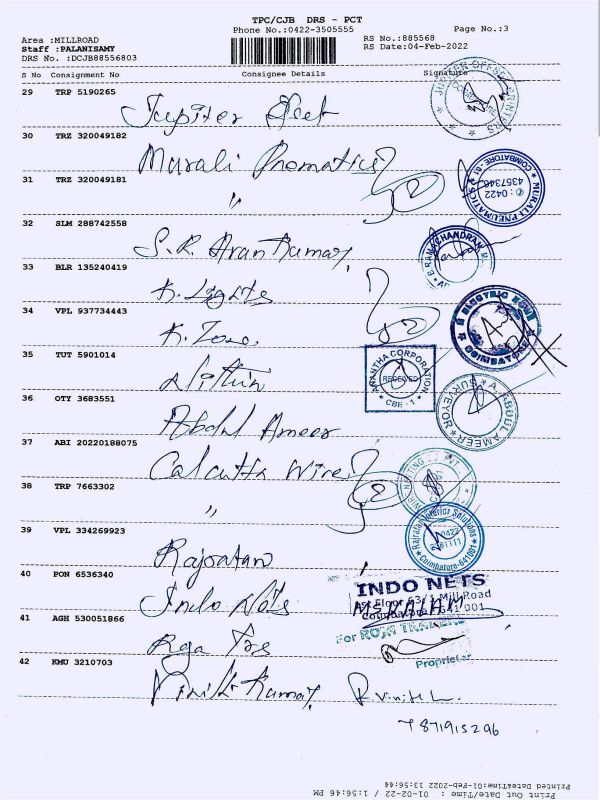 TPC/CJB DRS - PCT
Phone No.:0422-3505555
Page No.:3
Area :MILLROAD
RS No.:885568
Staff :PALANISAMY
RS Date:04-Feb-2022
DRS No. :DCJB88556803
S No Consignment No Consignee Details Signature
29 TRP 5190265
Jupiter Offset
JUPITER OFFSET PRINTERS
30 TRZ 320049182
Murali Pnematics
MURALI PNEUMATICS
COIMBATORE - 01
✆ : 0422
4357346
31 TRZ 320049181
"
32 SLM 288742558
S.R. Arun Kumar
33 BLR 135240419
K. Lights
34 VPL 937734443
K. Zone.
ELECTRIC ZONE
COIMBATORE
35 TUT 5901014
Nithin
CORPORATION
RECEIVED
* CBE - 1 *
36 OTY 3683551
Abdul Ameer
A. ABDUL AMEER
SURVEYOR
37 ABI 20220188075
Calcutta Wire
38 TRP 7663302
"
39 VPL 334269923
Rajratan
Solutions
Coimbatore-641001
40 PON 6536340
Indo Nets
INDO NETS
1st Floor 63/1 Mill Road
Coimbatore - 641 001
41 AGH 530051866
Roja Trs
For ROJA TRADERS
Proprietor
42 KMU 3210703
Vinith Kumar R.Vinith L.
7871915296
Print Out Date/Time : 01-02-22 / 1:56:46 PM
Printed Date&Time:01-Feb-2022 13:56:44